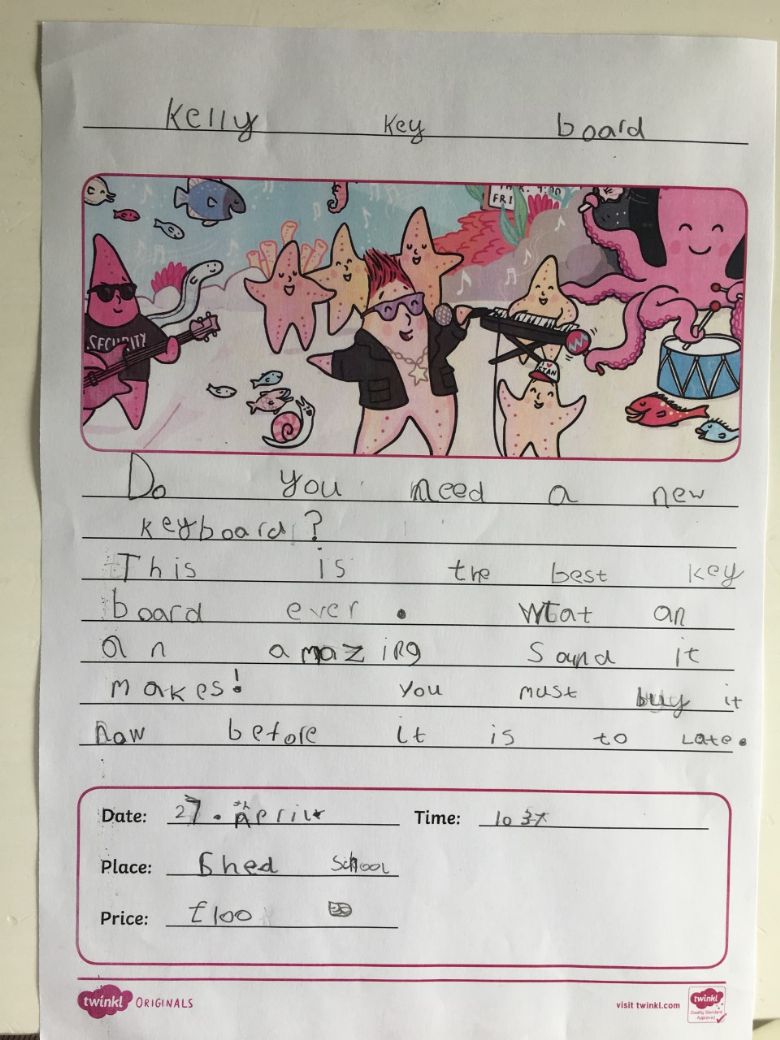 Kelly key board
FRI
SECURITY
Do you need a new
keyboard?
This is the best key
board ever. What an
an amazing Sound it
makes! you must buy it
now before it is to Late.
Date: 27.th April
Time: 10
Place: Shed School
Price: £100
twinkl ORIGINALS
visit twinkl.com
twinkl
Quality Standard
Approved